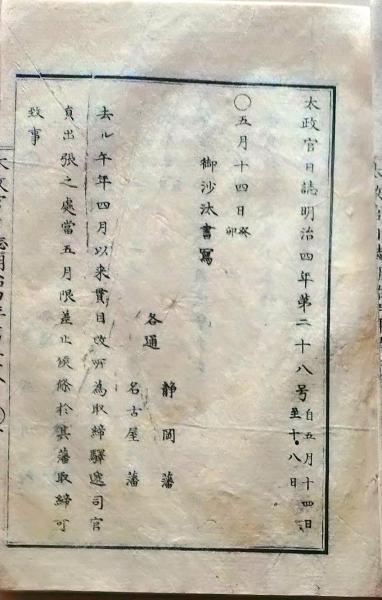 太政官日誌明治四年第二十八号 自五月十四日
至十八日
〇五月十四日 癸
卯
御沙汰書寫
静岡藩
名古屋藩
各通
去ル午年四月以来貫目改所為取締驛逓司官
員出張之處當五月限差止候條於其藩取締可
致事